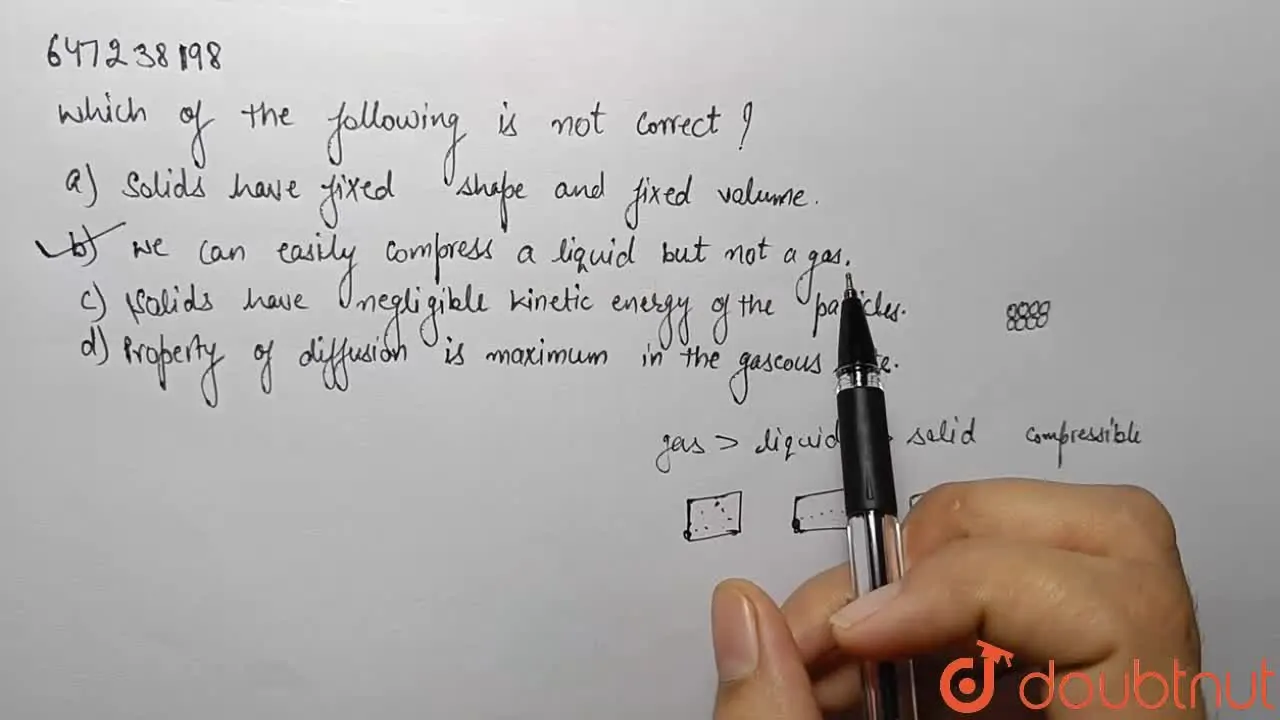 647238198
Which of the following is not correct?
a) Solids have fixed shape and fixed volume.
b) We can easily compress a liquid but not a gas.
c) Solids have negligible kinetic energy of the particles.
d) Property of diffusion is maximum in the gaseous
gas > liquid > solid compressible
doubtnut